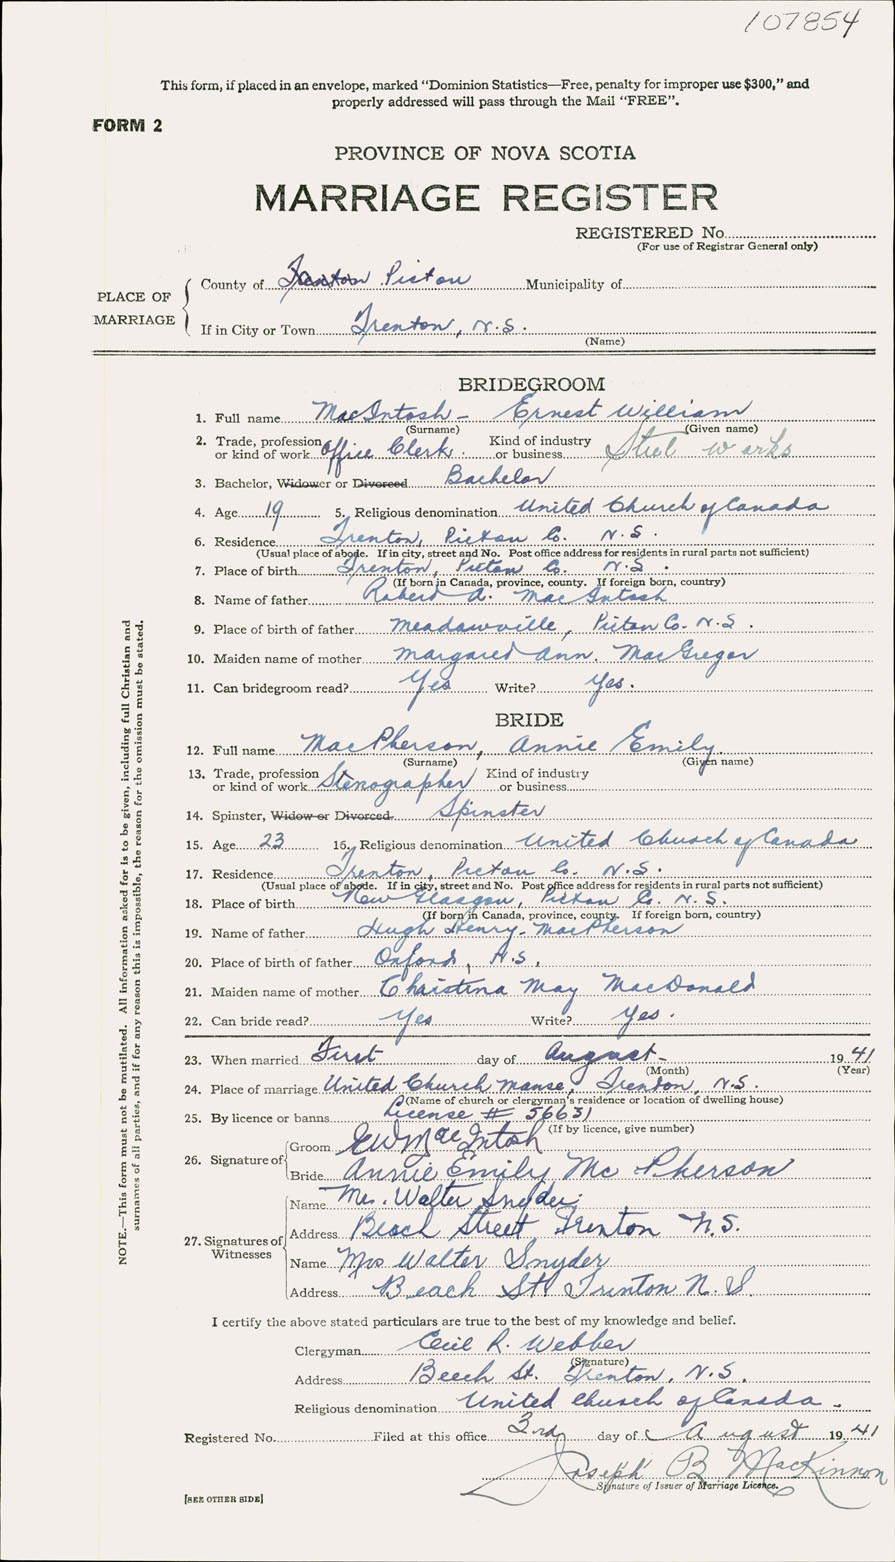 107854
This form, if placed in an envelope, marked "Dominion Statistics—Free, penalty for improper use $300," and
properly addressed will pass through the Mail "FREE".
FORM 2
PROVINCE OF NOVA SCOTIA
MARRIAGE REGISTER
REGISTERED No.
(For use of Registrar General only)
PLACE OF MARRIAGE
County of Trenton Pictou Municipality of
If in City or Town Trenton, N.S.
(Name)
BRIDEGROOM
1. Full name MacIntosh - Ernest William
(Surname) (Given name)
2. Trade, profession or kind of work Office Clerk. Kind of industry or business Steel works
3. Bachelor, Widower or Divorced Bachelor
4. Age 19 5. Religious denomination United Church of Canada
6. Residence Trenton, Pictou Co. N.S.
(Usual place of abode. If in city, street and No. Post office address for residents in rural parts not sufficient)
7. Place of birth Trenton, Pictou Co. N.S.
(If born in Canada, province, county. If foreign born, country)
8. Name of father Robert A. MacIntosh
9. Place of birth of father Meadowville, Pictou Co. N.S.
10. Maiden name of mother Margaret Ann. MacGregor
11. Can bridegroom read? Yes Write? Yes.
BRIDE
12. Full name MacPherson, Annie Emily
(Surname) (Given name)
13. Trade, profession or kind of work Stenographer Kind of industry or business
14. Spinster, Widow or Divorced Spinster
15. Age 23 16. Religious denomination United Church of Canada
17. Residence Trenton, Pictou Co. N.S.
(Usual place of abode. If in city, street and No. Post office address for residents in rural parts not sufficient)
18. Place of birth New Glasgow, Pictou Co. N.S.
(If born in Canada, province, county. If foreign born, country)
19. Name of father Hugh Henry MacPherson
20. Place of birth of father Oxford, N.S.
21. Maiden name of mother Christina May MacDonald
22. Can bride read? Yes Write? Yes.
23. When married First day of August 1941
(Month) (Year)
24. Place of marriage United Church Manse, Trenton, N.S.
(Name of church or clergyman's residence or location of dwelling house)
25. By licence or banns License # 56631
(If by licence, give number)
26. Signature of
Groom EW MacIntosh
Bride Annie Emily McPherson
27. Signatures of Witnesses
Name Mr. Walter Snyder
Address Beach Street Trenton N.S.
Name Mrs Walter Snyder
Address Beach St Trenton N.S
I certify the above stated particulars are true to the best of my knowledge and belief.
Clergyman Cecil R. Webber
(Signature)
Address Beech St. Trenton, N.S.
Religious denomination United Church of Canada.
Registered No. Filed at this office 3rd day of August 1941
Joseph B MacKinnon
Signature of Issuer of Marriage Licence.
[SEE OTHER SIDE]
NOTE.—This form must not be mutilated. All information asked for is to be given, including full Christian and
surnames of all parties, and if for any reason this is impossible, the reason for the omission must be stated.